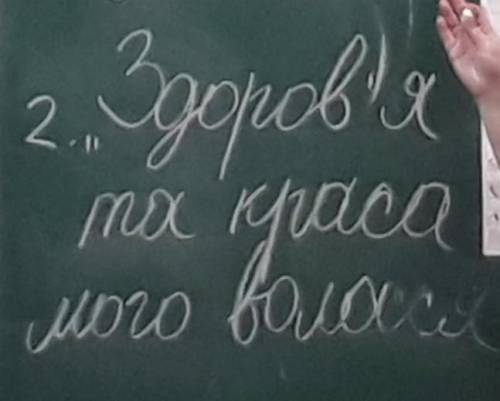 2. „Здоров'я
та краса
мого волосся